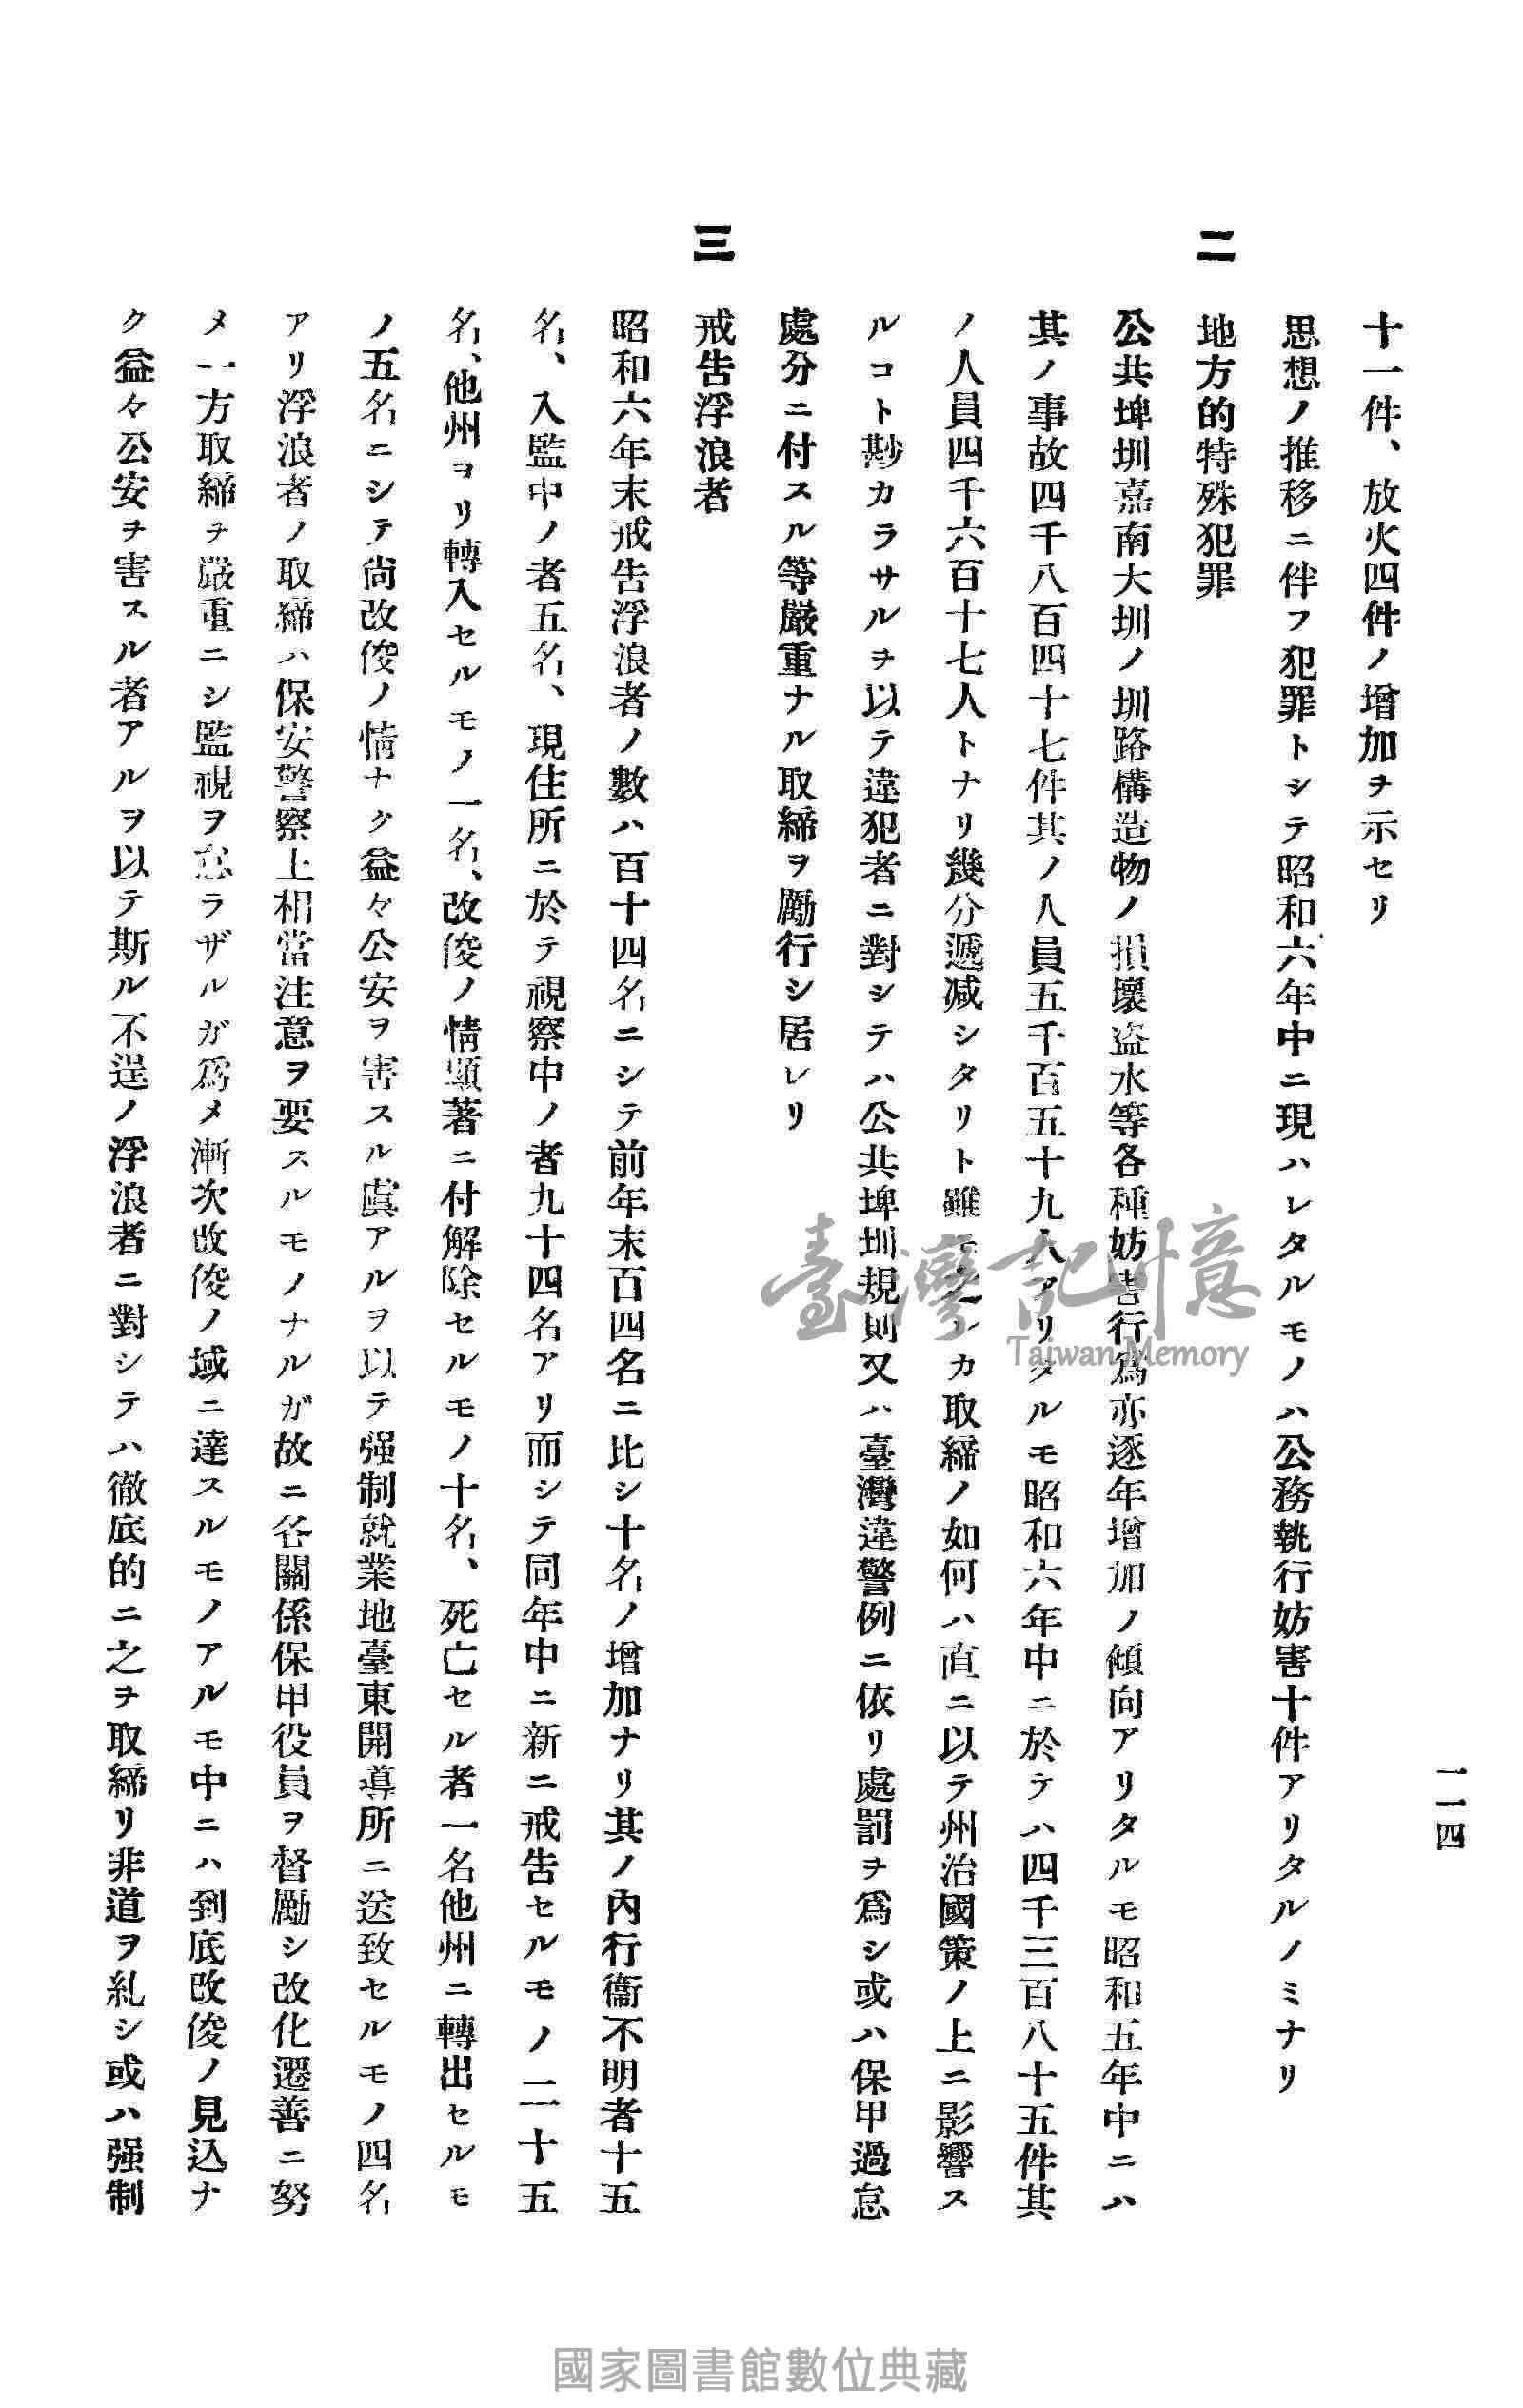 一一四
十一件、放火四件ノ增加ヲ示セリ
思想ノ推移ニ伴フ犯罪トシテ昭和六年中ニ現ハレタルモノハ公務執行妨害十件アリタルノミナリ
二 地方的特殊犯罪
公共埤圳嘉南大圳ノ圳路構造物ノ損壞盜水等各種妨害行爲亦逐年增加ノ傾向アリタルモ昭和五年中ニハ
其ノ事故四千八百四十七件其ノ人員五千百五十九人アリタルモ昭和六年中ニ於テハ四千三百八十五件其
ノ人員四千六百十七人トナリ幾分遞減シタリト雖モ之レカ取締ノ如何ハ直ニ以テ州治國策ノ上ニ影響ス
ルコト尠カラサルヲ以テ違犯者ニ對シテハ公共埤圳規則又ハ臺灣違警例ニ依リ處罰ヲ爲シ或ハ保甲過怠
處分ニ付スル等嚴重ナル取締ヲ勵行シ居レリ
三 戒告浮浪者
昭和六年末戒告浮浪者ノ數ハ百十四名ニシテ前年末百四名ニ比シ十名ノ增加ナリ其ノ內行衞不明者十五
名、入監中ノ者五名、現住所ニ於テ視察中ノ者九十四名アリ而シテ同年中ニ新ニ戒告セルモノ二十五
名、他州ヨリ轉入セルモノ一名、改俊ノ情顯著ニ付解除セルモノ十名、死亡セル者一名他州ニ轉出セルモ
ノ五名ニシテ尙改俊ノ情ナク益々公安ヲ害スル虞アルヲ以テ强制就業地臺東開導所ニ送致セルモノ四名
アリ浮浪者ノ取締ハ保安警察上相當注意ヲ要スルモノナルガ故ニ各關係保甲役員ヲ督勵シ改化遷善ニ努
メ一方取締ヲ嚴重ニシ監視ヲ怠ラザルガ爲メ漸次改俊ノ域ニ達スルモノアルモ中ニハ到底改俊ノ見込ナ
ク益々公安ヲ害スル者アルヲ以テ斯ル不逞ノ浮浪者ニ對シテハ徹底的ニ之ヲ取締リ非道ヲ糺シ或ハ强制
臺灣記憶
Taiwan Memory
國家圖書館數位典藏